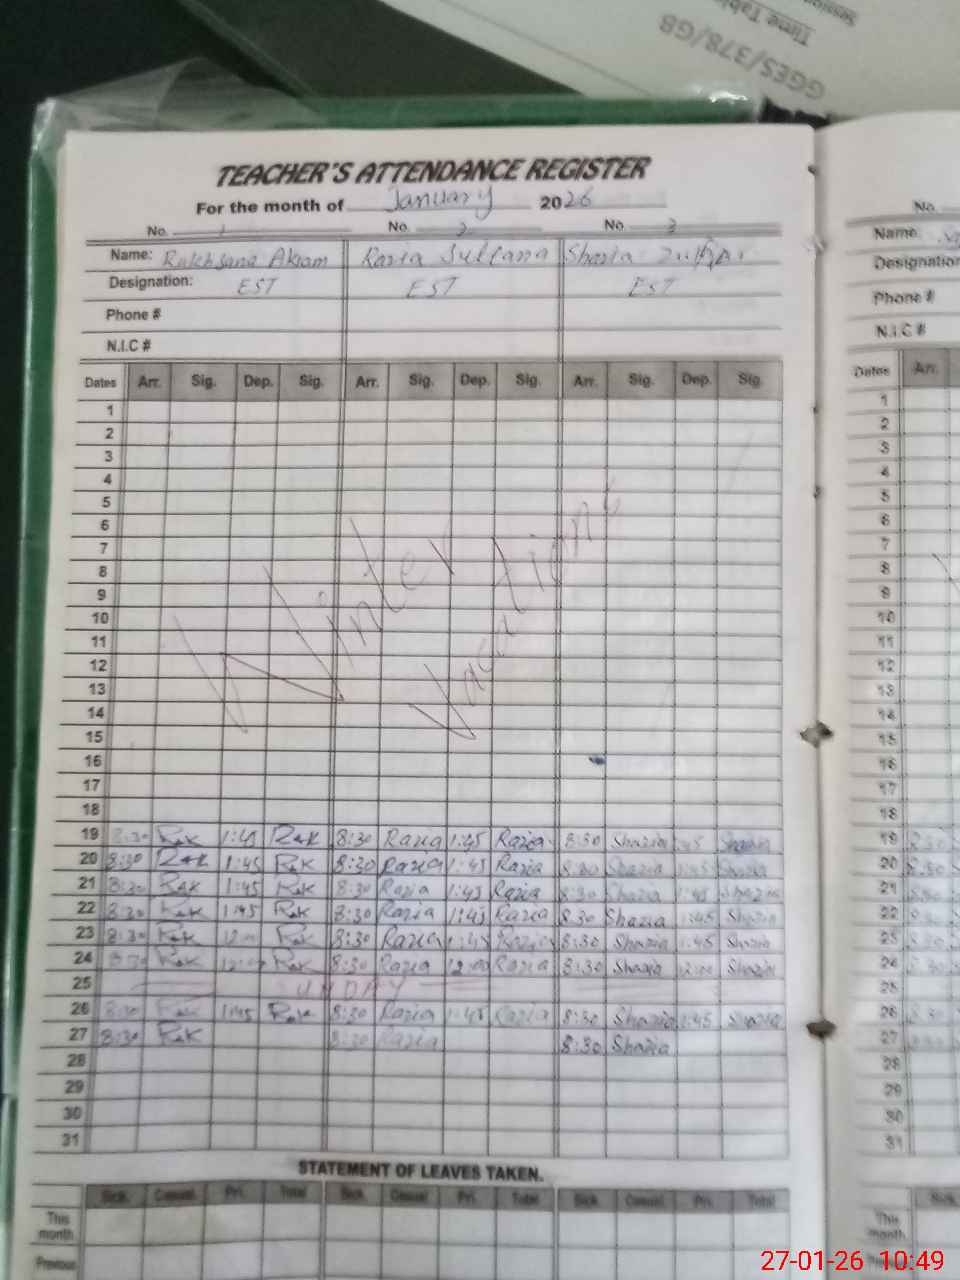 GGES/378/GB
Time Tabl
Session
TEACHER'S ATTENDANCE REGISTER
For the month of January 2026
No. 1 No. 2 No. 3
Name: Rukhsana Akram Razia Sultana Shazia
Designation: EST EST EST
Phone #
N.I.C #
Dates Arr. Sig. Dep. Sig. Arr. Sig. Dep. Sig. Arr. Sig. Dep. Sig.
1
2
3
4
5
6
7
8
9
10
11
12
13
14
15
16
17
18
Winter Vacations
19 8:30 Rak 1:45 Rak 8:30 Razia 1:45 Razia 8:30 Shazia :45 Shazia
20 8:30 Rak 1:45 Rak 8:30 Razia 1:45 Razia 8:30 Shazia 1:45 Shazia
21 8:30 Rak 1:45 Rak 8:30 Razia 1:45 Razia 8:30 Shazia 1:45 Shazia
22 8:30 Rak 1:45 Rak 8:30 Razia 1:45 Razia 8:30 Shazia 1:45 Shazia
23 8:30 Rak Rak 8:30 Razia 1:45 Razia 8:30 Shazia 1:45 Shazia
24 8:30 Rak 12:00 Rak 8:30 Razia 12:00 Razia 8:30 Shazia 12:00 Shazia
25 SUNDAY
26 8:30 Rak 1:45 Rak 8:30 Razia 1:45 Razia 8:30 Shazia 1:45 Shazia
27 8:30 Rak 8:30 Razia 8:30 Shazia
28
29
30
31
STATEMENT OF LEAVES TAKEN.
Sick. Casual. Pri. Total Sick. Casual. Pri. Total Sick. Casual. Pri. Total
This month
Previous
No.
Name:
Designation
Phone #
N.I.C #
Dates Arr.
1
2
3
4
5
6
7
8
9
10
11
12
13
14
15
16
17
18
19 8:30
20 8:30
21 8:30
22 8:30
23 8:30
24 8:30
25
26 8:30
27 8:30
28
29
30
31
Sick.
This month
Previous
27-01-26 10:49